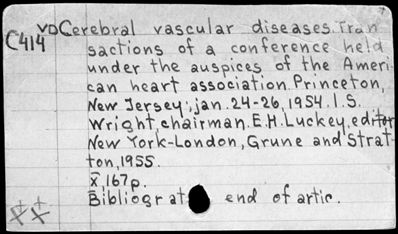 vD Cerebral vascular diseases. Tran
C414 sactions of a conference held
under the auspices of the Ameri
can heart association. Princeton,
New Jersey, jan. 24-26, 1954. I.S.
Wright, chairman. E.H. Luckey, editor
New York-London, Grune and Strat-
ton, 1955.
X, 167p.
Bibliogr at end of artic.